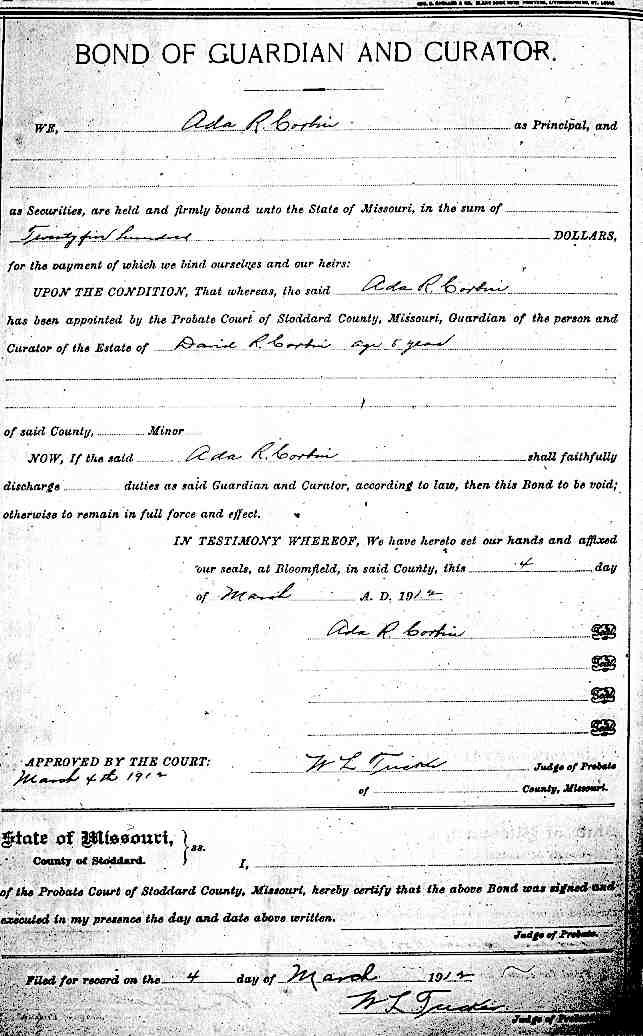 BOND OF GUARDIAN AND CURATOR.
WE, Ada R. Corbin as Principal, and
as Securities, are held and firmly bound unto the State of Missouri, in the sum of
Twenty five hundred DOLLARS,
for the payment of which we bind ourselves and our heirs:
UPON THE CONDITION, That whereas, the said Ada R Corbin
has been appointed by the Probate Court of Stoddard County, Missouri, Guardian of the person and
Curator of the Estate of David R. Corbin age 5 year
of said County, Minor
NOW, If the said Ada R. Corbin shall faithfully
discharge duties as said Guardian and Curator, according to law, then this Bond to be void;
otherwise to remain in full force and effect.
IN TESTIMONY WHEREOF, We have hereto set our hands and affixed
our seals, at Bloomfield, in said County, this 4 day
of March A. D. 1912
Ada R Corbin Seal
Seal
Seal
Seal
APPROVED BY THE COURT: W L Tucker Judge of Probate
March 4th 1912
of County, Missouri.
State of Missouri, } ss.
County of Stoddard.
I,
of the Probate Court of Stoddard County, Missouri, hereby certify that the above Bond was signed and
executed in my presence the day and date above written.
Judge of Probate.
Filed for record on the 4 day of March 1912
W L Tucker
Judge of Probate